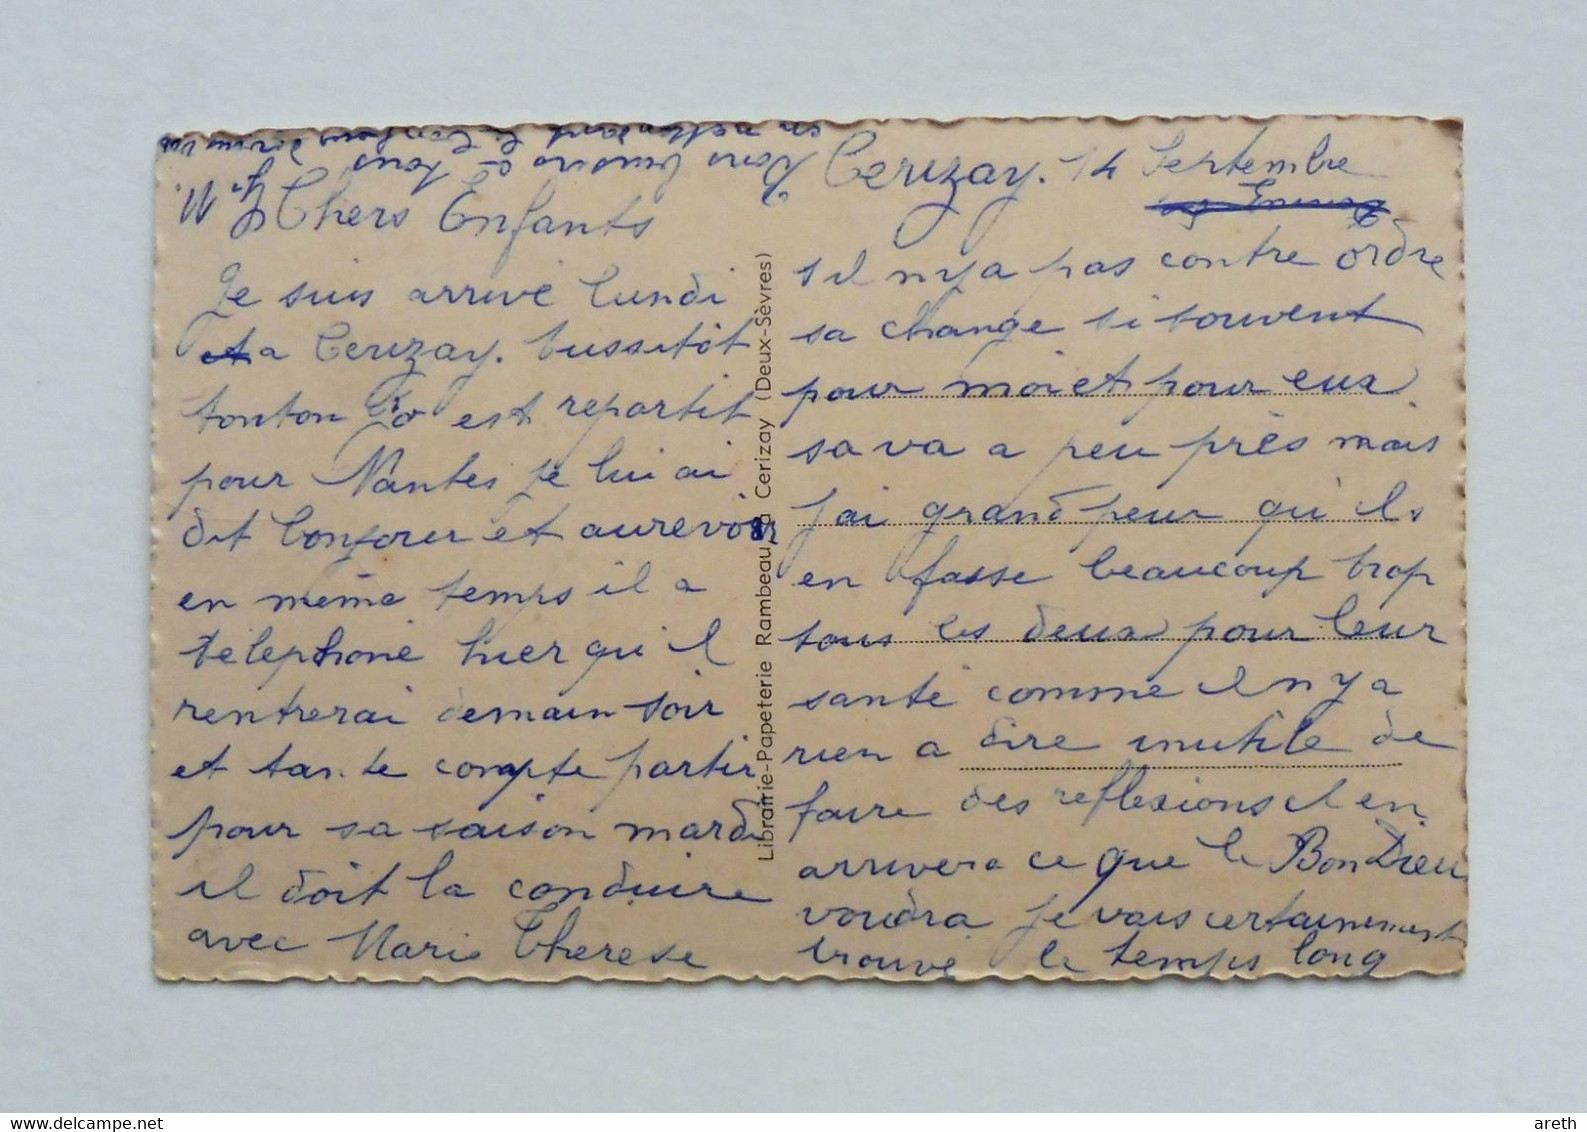 Cerizay. 14 Septembre
Chers Enfants
Je suis arrivé lundi
a Cerizay. tussitôt
tonton est repartit
pour Nantes je lui ai
dit bonjour et aurevoir
en même temps il a
téléphoné hier qu'il
rentrerai demain soir
et tante compte partir
pour sa saison mardi
il doit la conduire
avec Marie Therese
s il n y a pas contre ordre
sa change si souvent
pour moi et pour eux
sa va a peu près mais
j'ai grand peur qu'ils
en fasse beaucoup trop
tous les deux pour leur
santé comme il n y a
rien a dire inutile de
faire des reflexions il en
arrivera ce que le Bon Dieu
voudra je vais certainement
trouvé le temps long
Bons baisers a tous
en attendant le de vous
Librairie-Papeterie Rambeau à Cerizay (Deux-Sèvres)
www.delcampe.net
areth